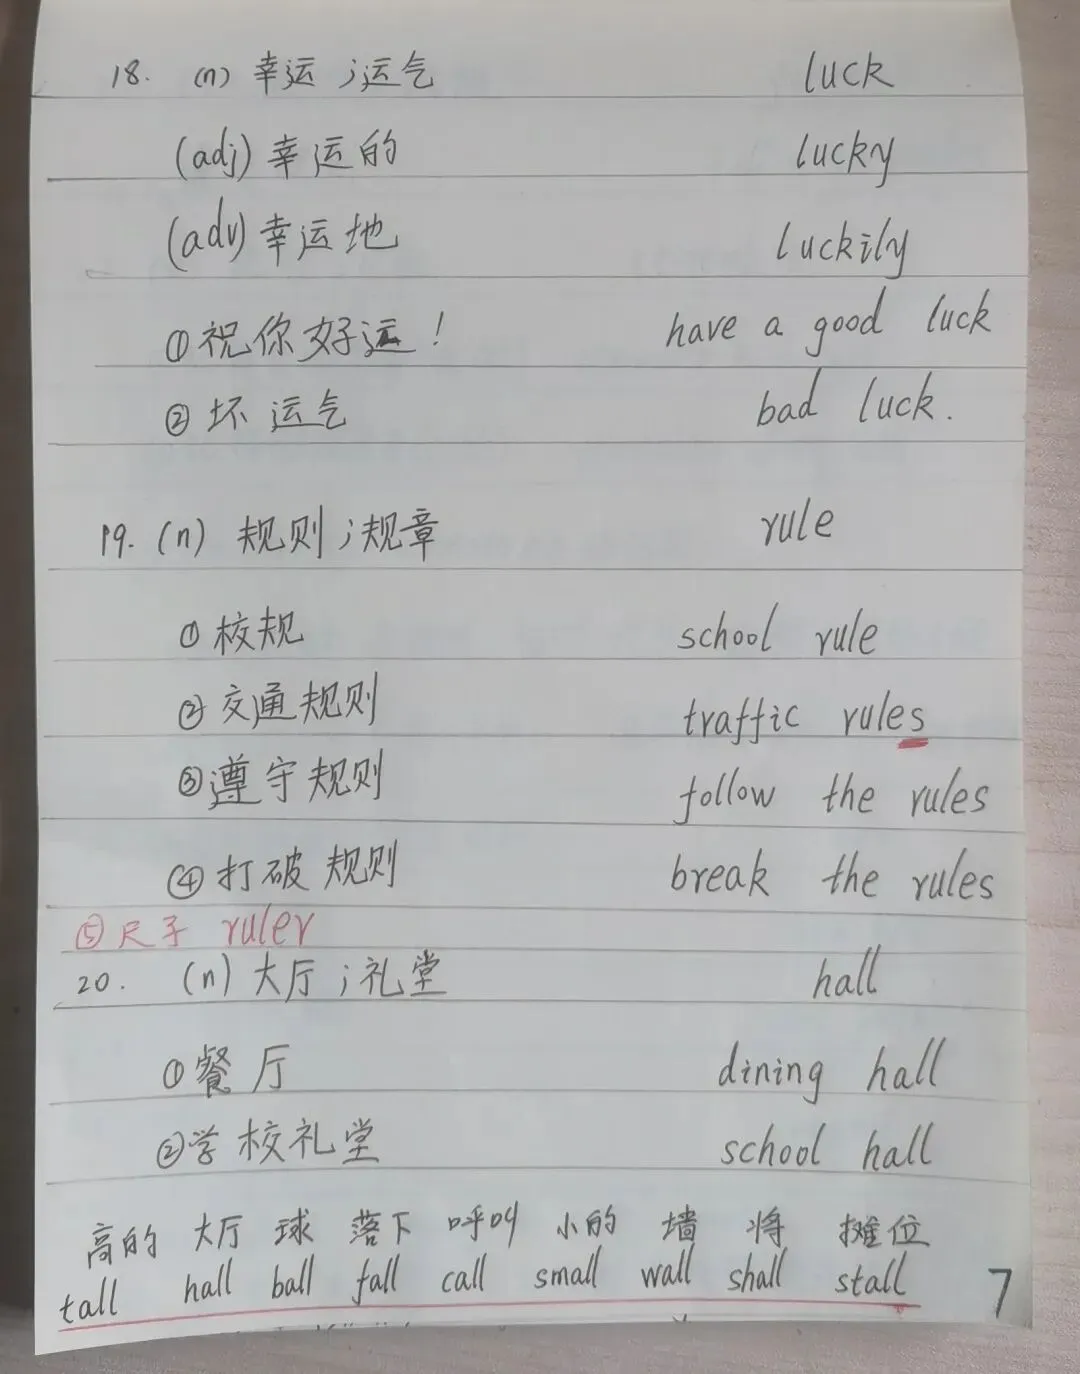 18. (n) 幸运；运气 luck
(adj) 幸运的 lucky
(adv) 幸运地 luckily
①祝你好运！ have a good luck
②坏运气 bad luck.
19. (n) 规则；规章 rule
①校规 school rule
②交通规则 traffic rules
③遵守规则 follow the rules
④打破规则 break the rules
⑤尺子 ruler
20. (n) 大厅；礼堂 hall
①餐厅 dining hall
②学校礼堂 school hall
高的 大厅 球 落下 呼叫 小的 墙 将 摊位
tall hall ball fall call small wall shall stall
7